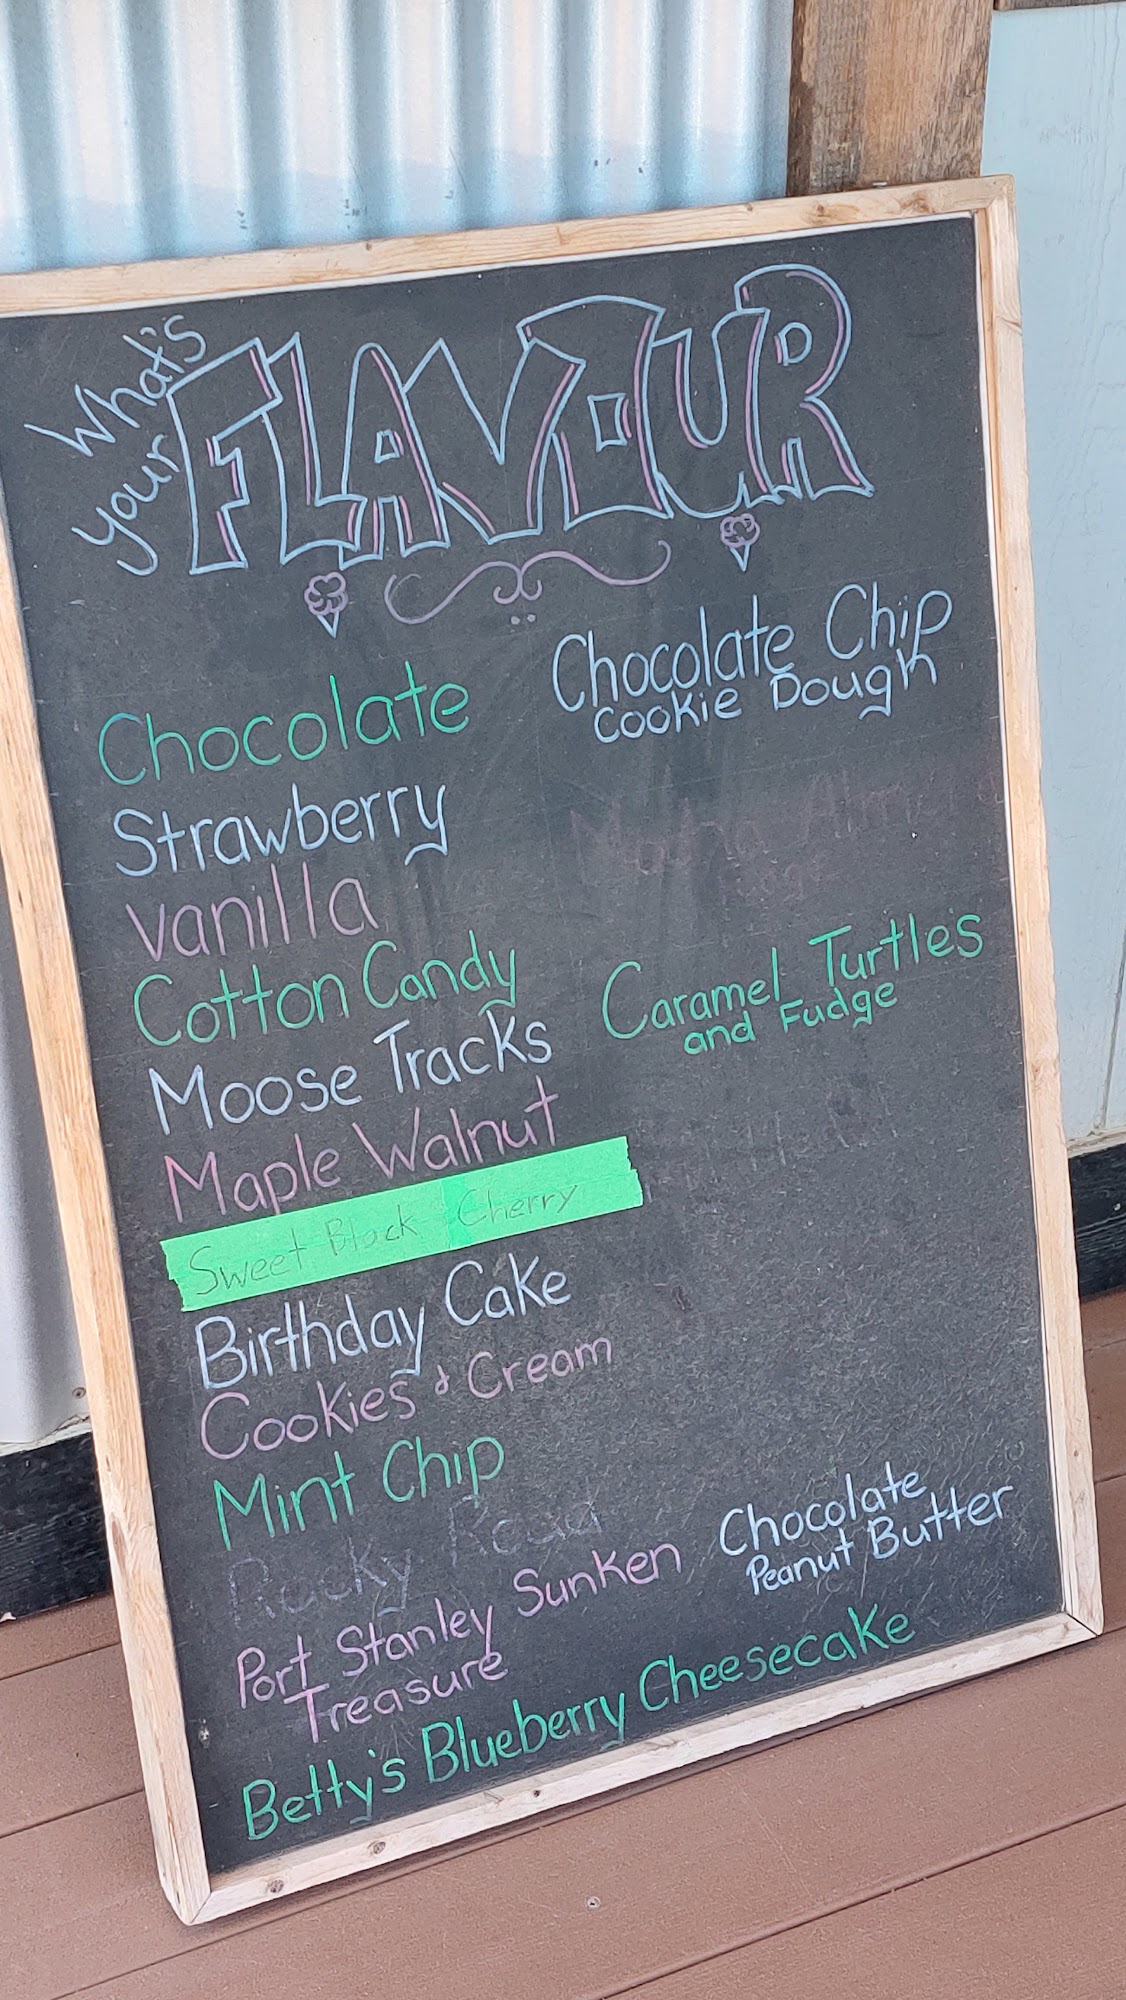 What's
your
FLAVOUR
Chocolate
Strawberry
Vanilla
Cotton Candy
Moose Tracks
Maple Walnut
Sweet Black Cherry
Birthday Cake
Cookies & Cream
Mint Chip
Rocky Road
Port Stanley Sunken
Treasure
Betty's Blueberry Cheesecake
Chocolate Chip
Cookie Dough
Fudge
Caramel Turtles
and Fudge
Chocolate
Peanut Butter